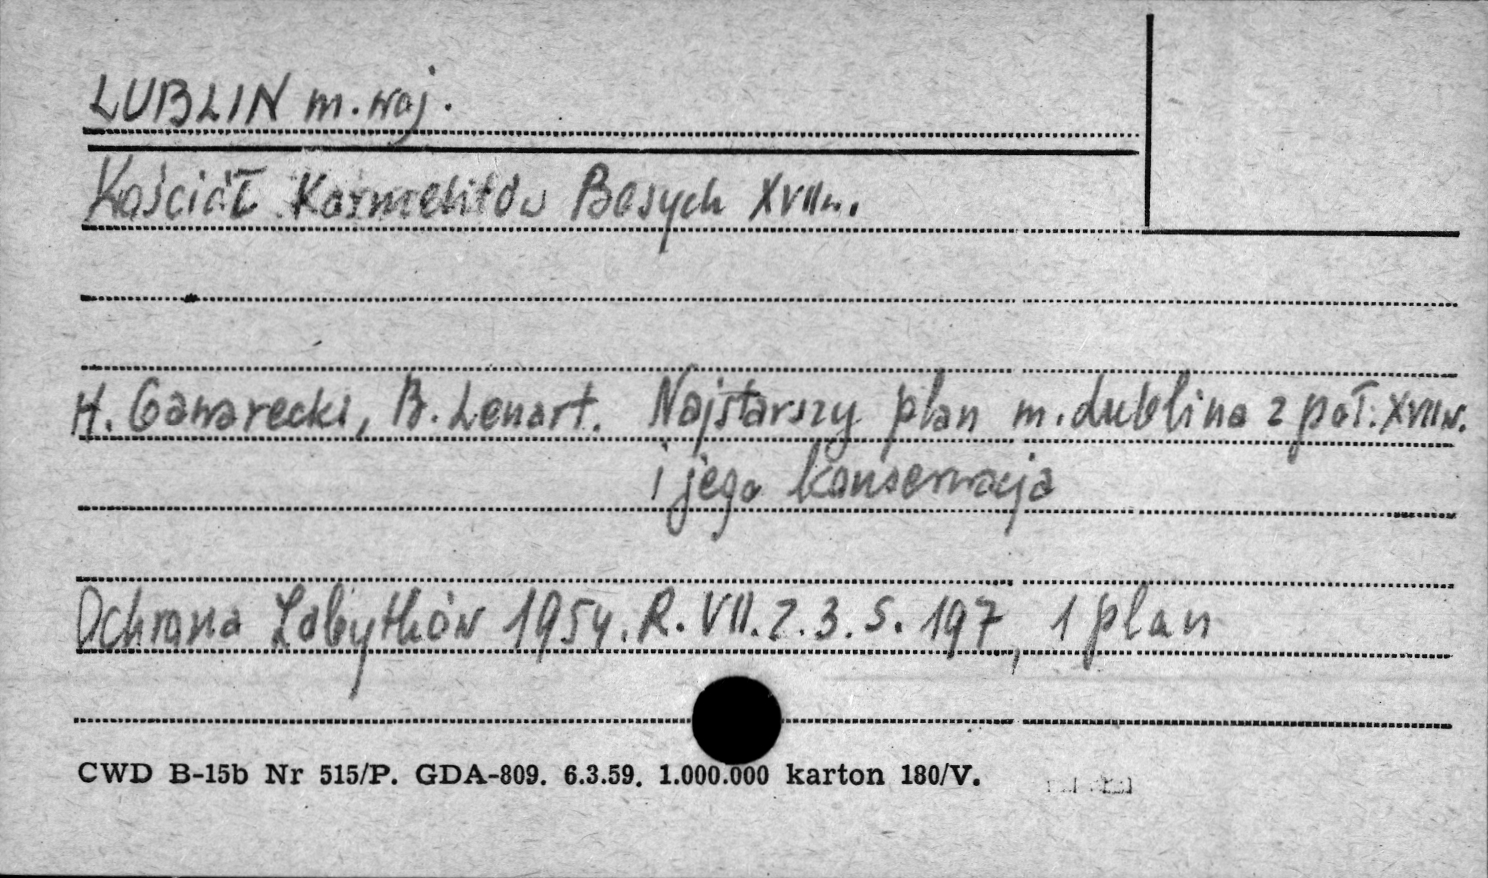 LUBLIN m. woj.
Kościół Karmelitów Bosych XVII w.
H. Gawarecki, B. Lenart. Najstarszy plan m. Lublina z poł. XVII w.
i jego konserwacja
Ochrona Zabytków 1954. R. VII. z. 3. s. 197, 1 plan
CWD B-15b Nr 515/P. GDA-809. 6.3.59. 1.000.000 karton 180/V.